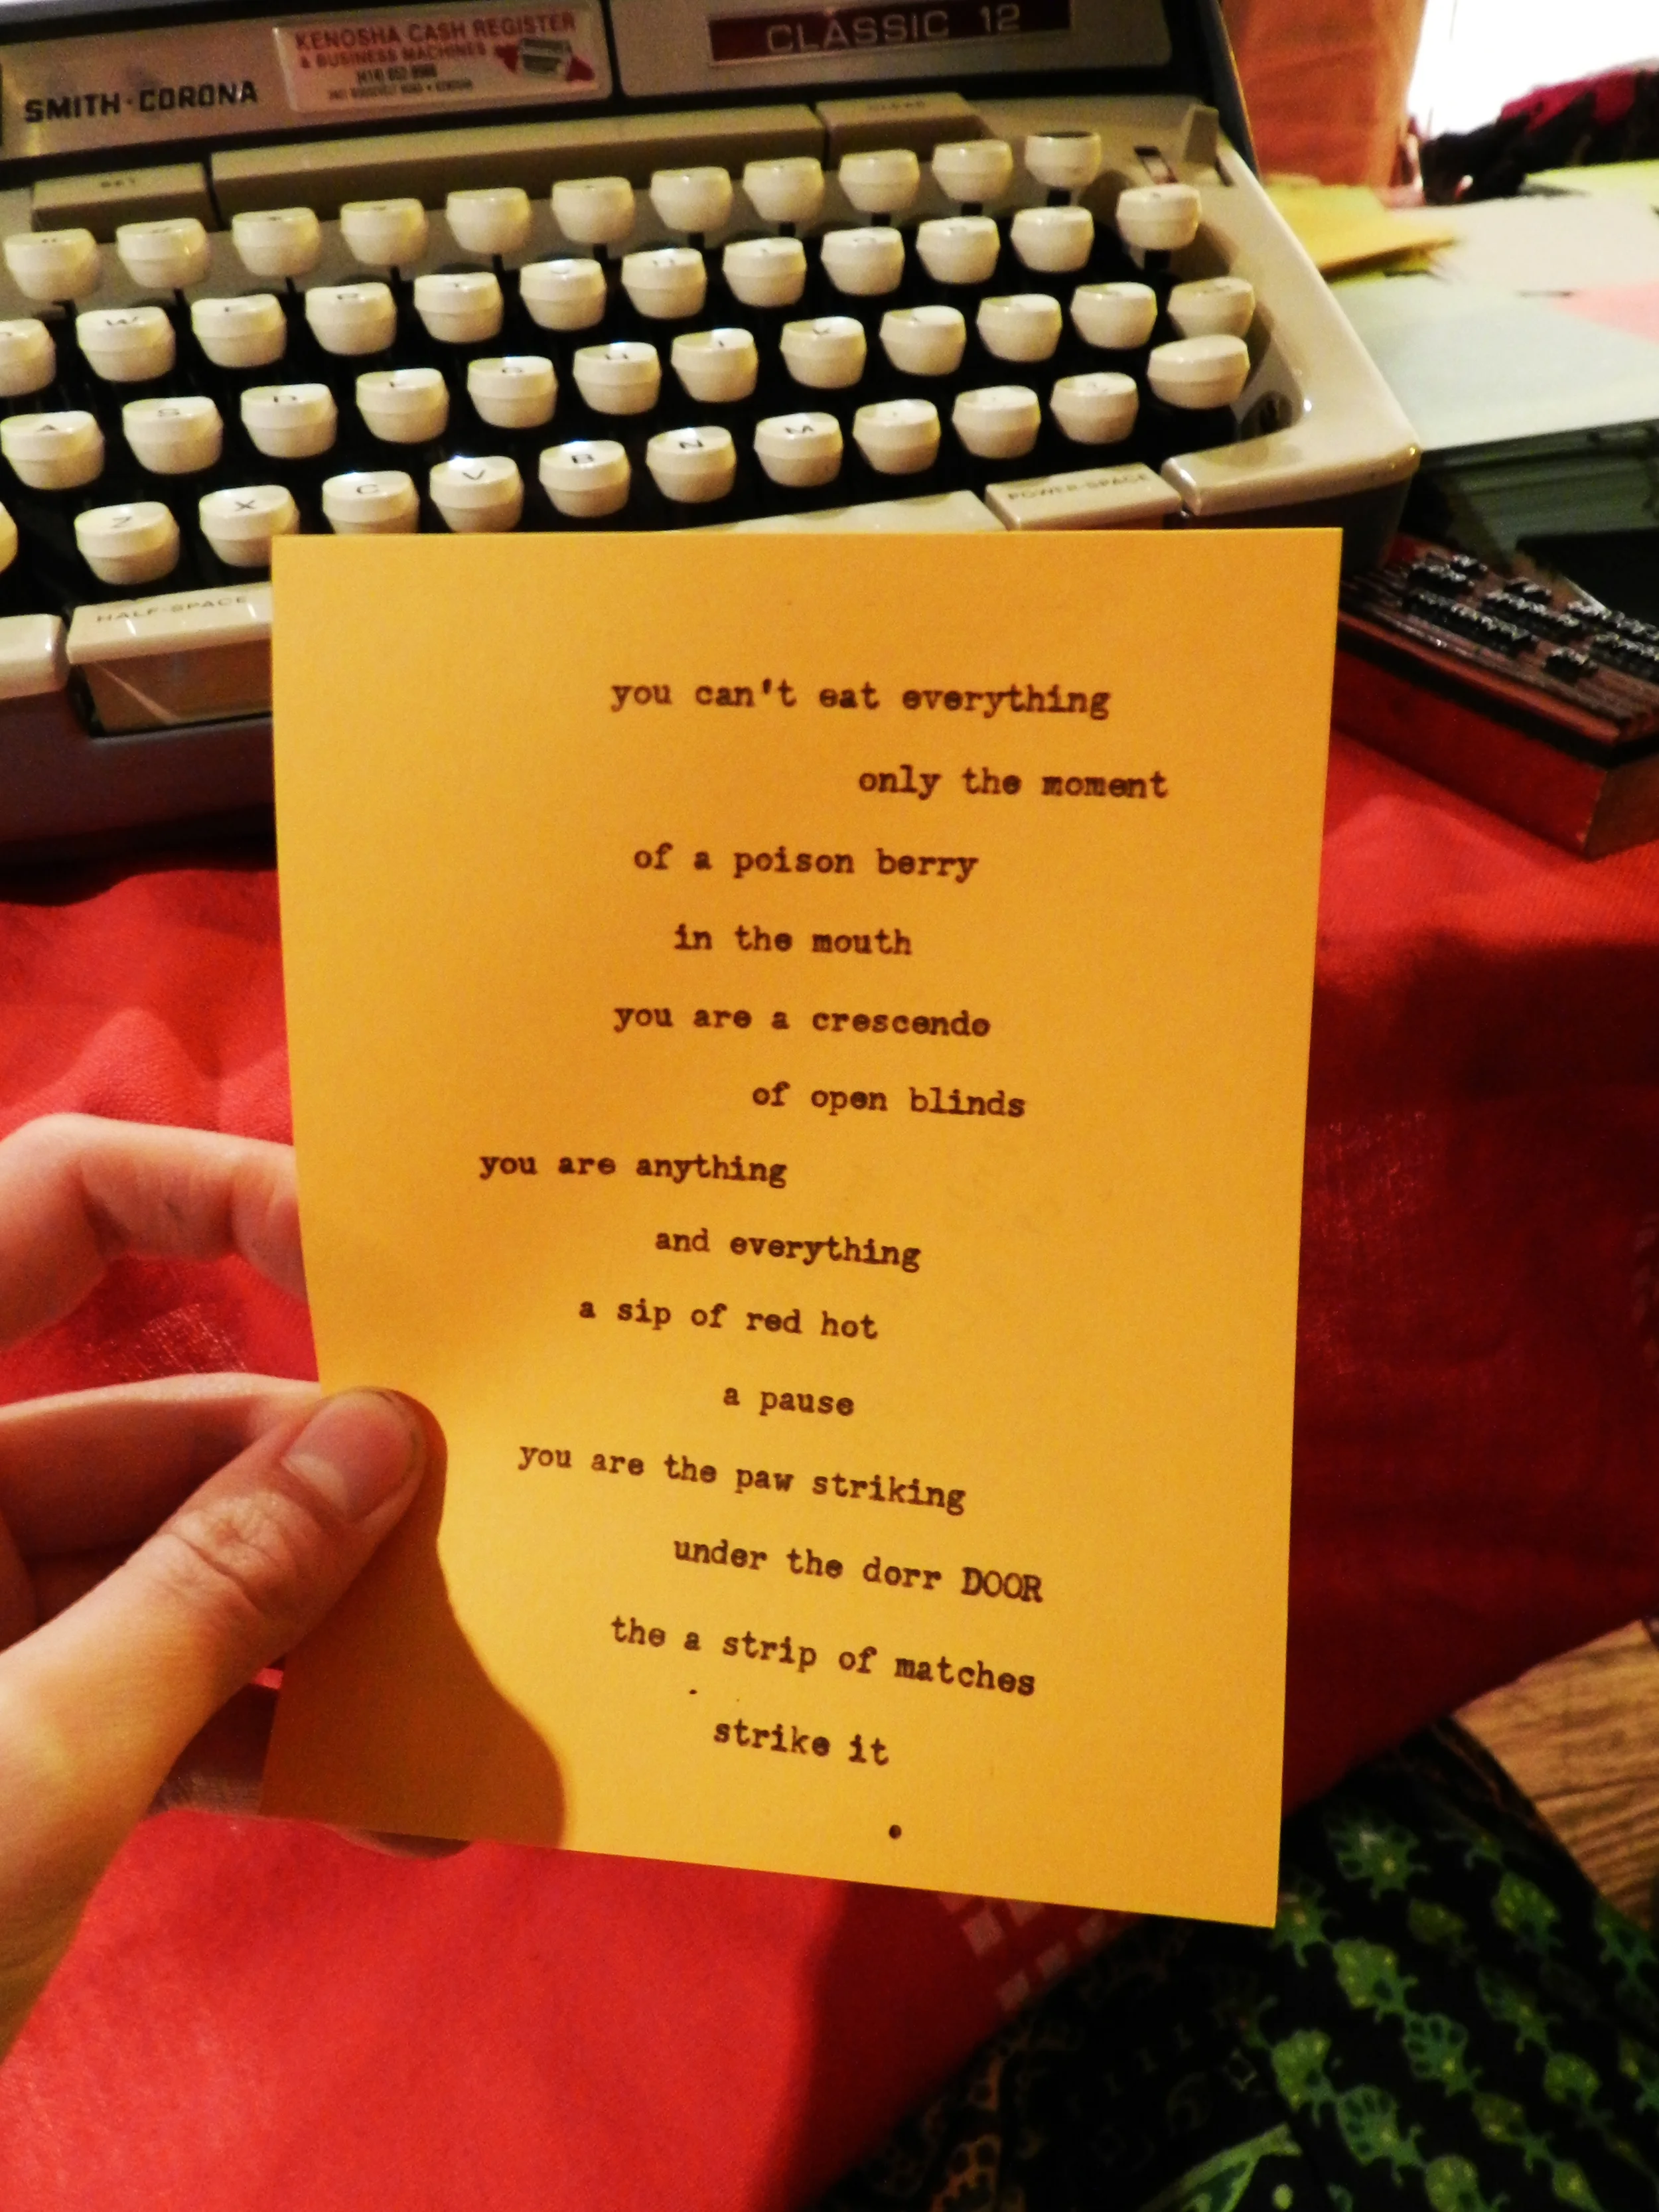 KENOSHA CASH REGISTER
& BUSINESS MACHINES
SMITH-CORONA
CLASSIC 12
W E R T
A S D F G H J K
Z X C V B N M
POWER-SPACE
HALF-SPACE
you can't eat everything
only the moment
of a poison berry
in the mouth
you are a crescendo
of open blinds
you are anything
and everything
a sip of red hot
a pause
you are the paw striking
under the dorr DOOR
the a strip of matches
strike it
.